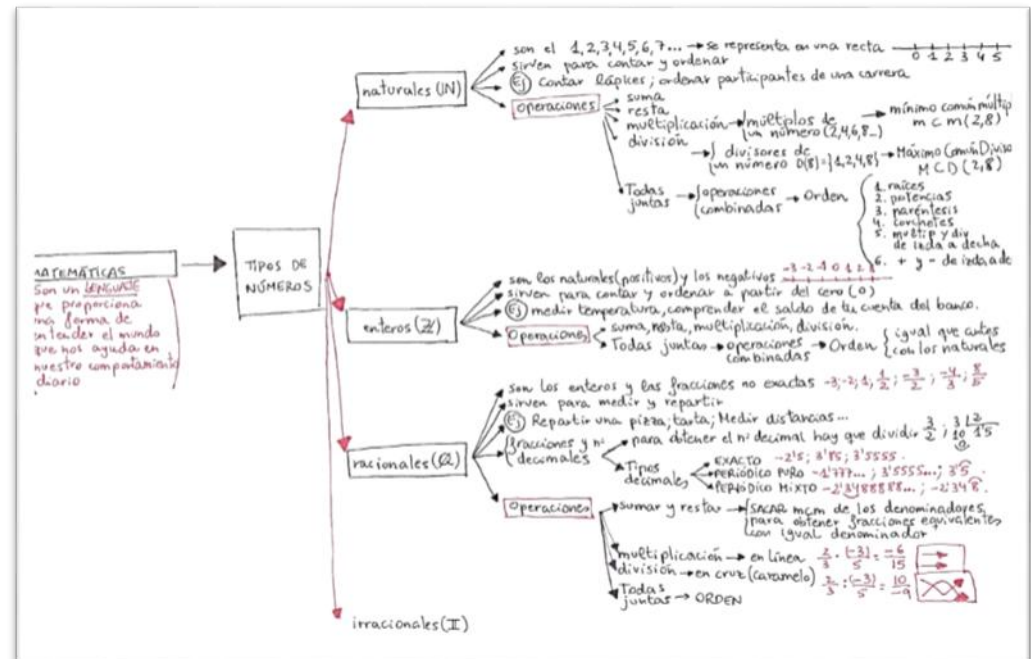 MATEMÁTICAS
Son un LENGUAJE
que proporciona
una forma de
entender el mundo
que nos ayuda en
nuestro comportamiento
diario
TIPOS DE
NÚMEROS
naturales (ℕ)
son el 1,2,3,4,5,6,7... → se representa en una recta 0 1 2 3 4 5
sirven para contar y ordenar
Ej Contar lápices; ordenar participantes de una carrera
Operaciones
suma
resta
multiplicación → múltiplos de un número (2,4,6,8..) → mínimo común múltip
m c m (2,8)
división
→ divisores de un número D(8)={1,2,4,8} → Máximo Común Diviso
M C D (2,8)
Todas juntas → operaciones combinadas → Orden
1. raíces
2. potencias
3. paréntesis
4. corchetes
5. multip y div
de izda a decha
6. + y - de izda, a de
enteros (ℤ)
son los naturales (positivos) y los negativos -3 -2 -1 0 1 2 3
sirven para contar y ordenar a partir del cero (0)
Ej medir temperatura, comprender el saldo de tu cuenta del banco.
Operaciones
suma, resta, multiplicación, división.
Todas juntas → operaciones combinadas → Orden { igual que antes
con los naturales
racionales (ℚ)
son los enteros y las fracciones no exactas -3; -2; 1; 1/2; -3/2; -4/3; 8/5
sirven para medir y repartir
Ej Repartir una pizza; tarta; Medir distancias...
fracciones y nº decimales
para obtener el nº decimal hay que dividir 3/2 ; 3 |2
10 1'5
0
Tipos decimales
EXACTO -2'5; 3'85; 3'5555.
PERIÓDICO PURO -1'777...; 3'5555...; 3'5.
PERIÓDICO MIXTO -2'3488888...; -2'348.
Operaciones
sumar y restar → SACAR mcm de los denominadores,
para obtener fracciones equivalentes
con igual denominador
multiplicación → en línea 2/3 · (-3)/5 = -6/15
división → en cruz (caramelo) 2/3 : (-3)/5 = 10/-9
Todas juntas → ORDEN
irracionales (𝕀)